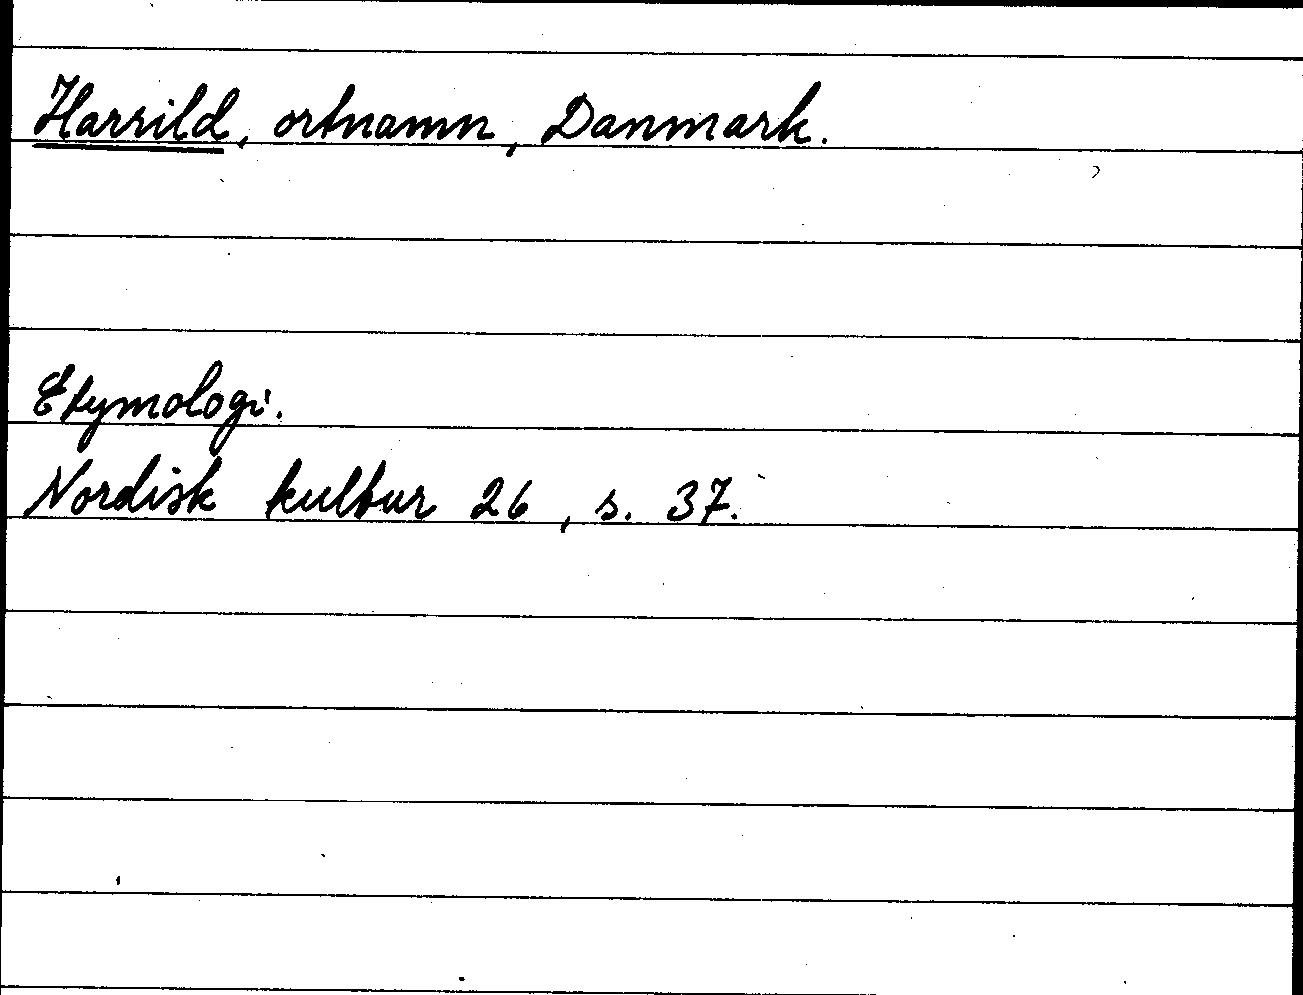 Harrild, ortnamn, Danmark.
Etymologi.
Nordisk kultur 26, s. 37.